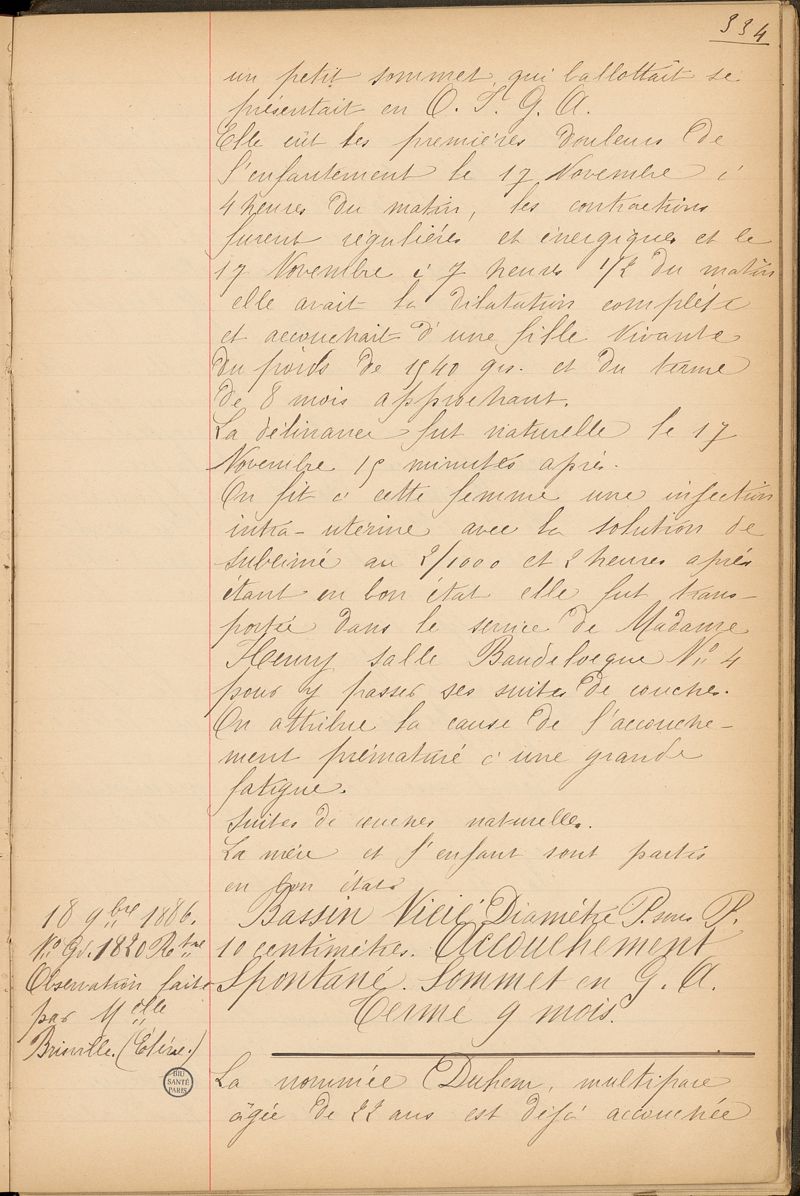 334
un petit sommet qui ballottait se
présentait en O. I. G. A.
Elle eût les premières douleurs de
l'enfantement le 17 Novembre à
4 heures du matin, les contractions
furent régulières et énergiques et le
17 Novembre à 7 heures 1/2 du matin
elle avait la dilatation complète
et accouchait d'une fille vivante
du poids de 1540 grs. et du terme
de 8 mois approchant.
La délivrance fut naturelle le 17
Novembre 15 minutes après.
On fit à cette femme une injection
intra-utérine avec la solution de
sublimé au 2/1000 et 2 heures après
étant en bon état elle fut trans-
portée dans le service de Madame
Henry salle Baudelocque No 4
pour y passer ses suites de couches.
On attribue la cause de l'accouche-
ment prématuré à une grande
fatigue.
Suites de couches naturelles.
La mère et l'enfant sont partis
en bon état
18 9bre 1886.
No Gd. 1820 Rtre
Observation faite
par Melle
Brinville. (Elève.)
Bassin Vicié Diamètre P. sous P.
10 centimètres. Accouchement
Spontané. Sommet en G. A.
Terme 9 mois.
BIU
SANTÉ
PARIS
La nommée Duhem, multipare
âgée de 22 ans est déjà accouchée